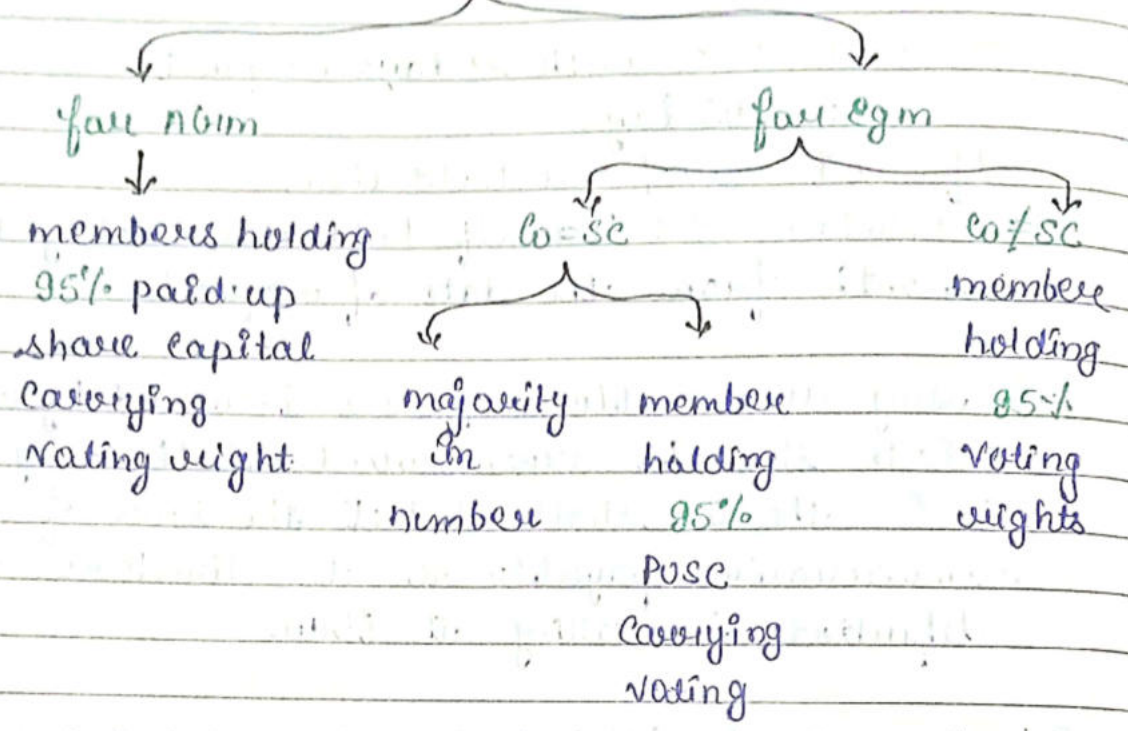 for AGM
for egm
members holding
95% paid-up
share capital
carrying
voting right
Co = SC
majority
in
number
member
holding
95%
PUSC
carrying
voting
Co ≠ SC
member
holding
95%
voting
rights